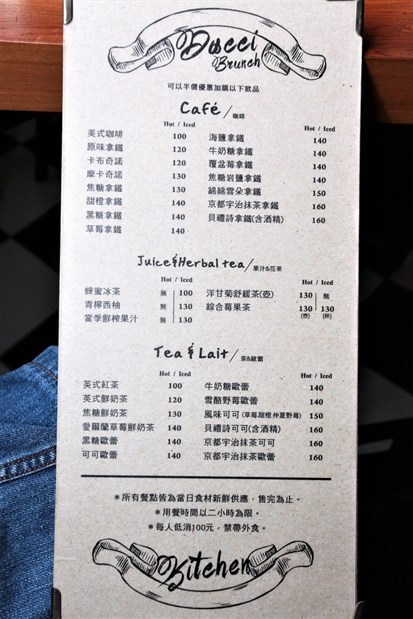 Ducci
Brunch
可以半價優惠加購以下飲品
Café/咖啡
Hot / Iced
美式咖啡 100
原味拿鐵 120
卡布奇諾 120
摩卡奇諾 130
焦糖拿鐵 130
甜橙拿鐵 140
黑糖拿鐵 140
草莓拿鐵 140
Hot / Iced
海鹽拿鐵 140
牛奶糖拿鐵 140
覆盆莓拿鐵 140
焦糖岩鹽拿鐵 140
綿綿雲朵拿鐵 150
京都宇治抹茶拿鐵 160
貝禮詩拿鐵(含酒精) 160
Juice&Herbal tea/果汁&花茶
Hot / Iced
蜂蜜冰茶 無 100
青檸西柚 無 130
當季鮮榨果汁 無 130
Hot / Iced
洋甘菊舒緩茶(壺) 130 無
綜合莓果茶 130(壺) 130(杯)
Tea & Lait/茶&歐蕾
Hot / Iced
英式紅茶 100
英式鮮奶茶 120
焦糖鮮奶茶 130
愛爾蘭草莓鮮奶茶 140
黑糖歐蕾 140
可可歐蕾 140
Hot / Iced
牛奶糖歐蕾 140
雪酪野莓歐蕾 140
風味可可(草莓甜橙仲夏野莓) 150
貝禮詩可可(含酒精) 160
京都宇治抹茶可可 160
京都宇治抹茶歐蕾 160
*所有餐點皆為當日食材新鮮供應，售完為止。
*用餐時間以二小時為限。
*每人低消100元，禁帶外食。
Kitchen